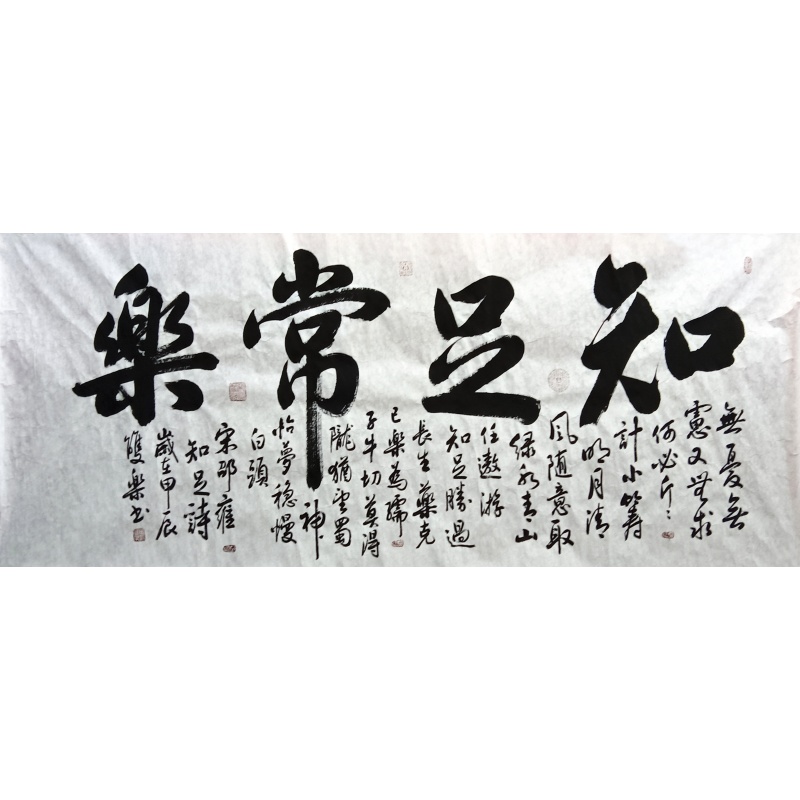 知足常樂
無憂無
慮又無求
何必斤〻
計小籌
明月清
風随意取
绿水青山
任遨游
知足勝過
長生藥克
己樂為孺
子牛切莫得
隴猶望蜀
神
怡夢穏慢
白頭
宋邵雍
知足詩
歲在甲辰
雙樂书